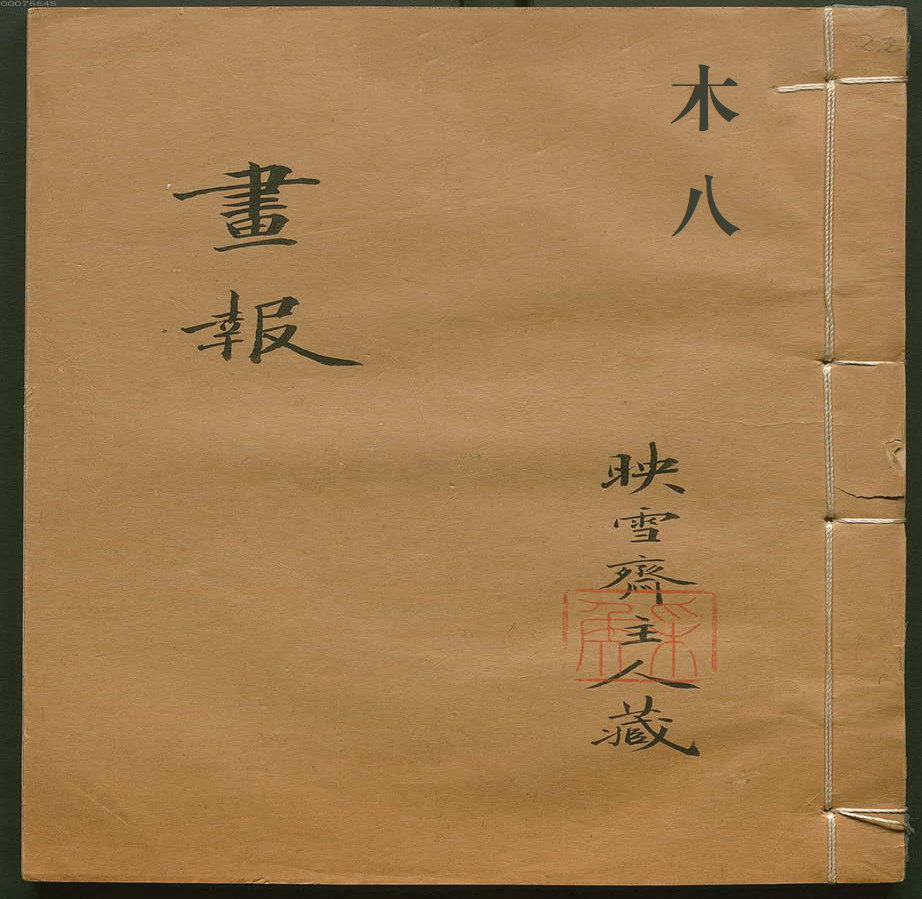 00075645
木八
映雪齋主人藏
畫報